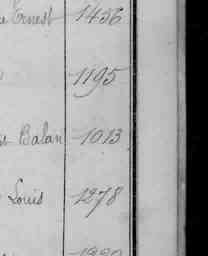 Ernest 1456
1195
Balan 1013
Louis 1278